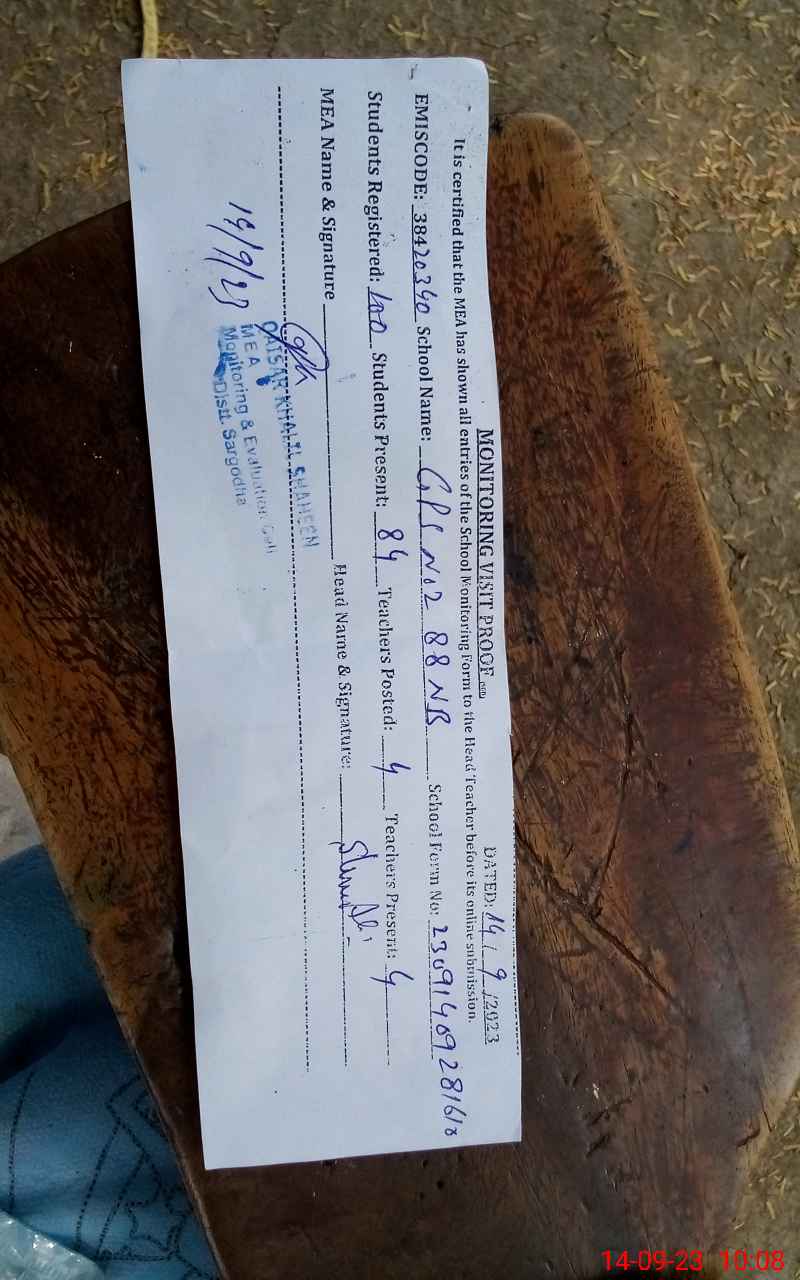 MONITORING VISIT PROOF
DATED: 14 / 9 /2023
It is certified that the MEA has shown all entries of the School Monitoring Form to the Head Teacher before its online submission.
EMISCODE: 38420340 School Name: GPS No2 88 NB School Form No:
Students Registered: 100 Students Present: 84 Teachers Posted: 4 Teachers Present: 4
MEA Name & Signature Head Name & Signature:
QAISAR KHALIL SHAHEEN
MEA
Monitoring & Evaluation Cell
Distt. Sargodha
14/9/23
14-09-23 10:08